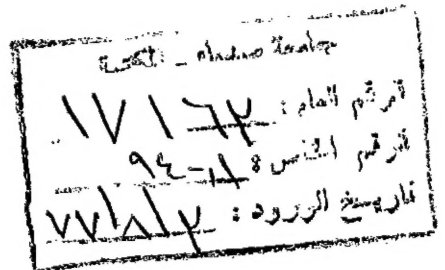 جامعة صنعاء - المكتبة
الرقم العام : ١٧١٦٢
الرقم الخاص : ٩٤-
تاريخ الورود : ٧٧/٨/٢